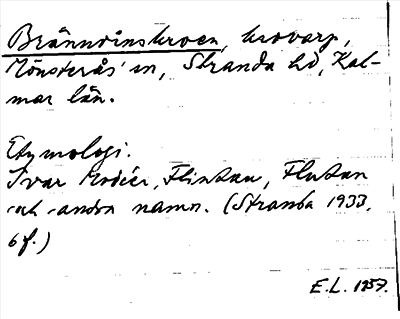 Brännvinskroen, krovarp,
Mönsterås sn, Stranda hd, Kal-
mar län.
Etymologi.
Ivar Modéer, Flintan, Flutan
och andra namn. (Stranda 1933,
6 f.)
E.L. 1957.